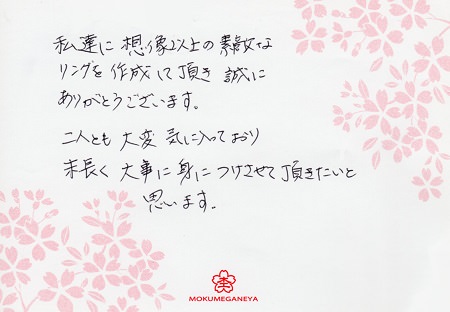 私達に想像以上の素敵な
リングを作成して頂き誠に
ありがとうございます。
二人とも大変気に入っており
末長く大事に身につけさせて頂きたいと
思います。
MOKUMEGANEYA